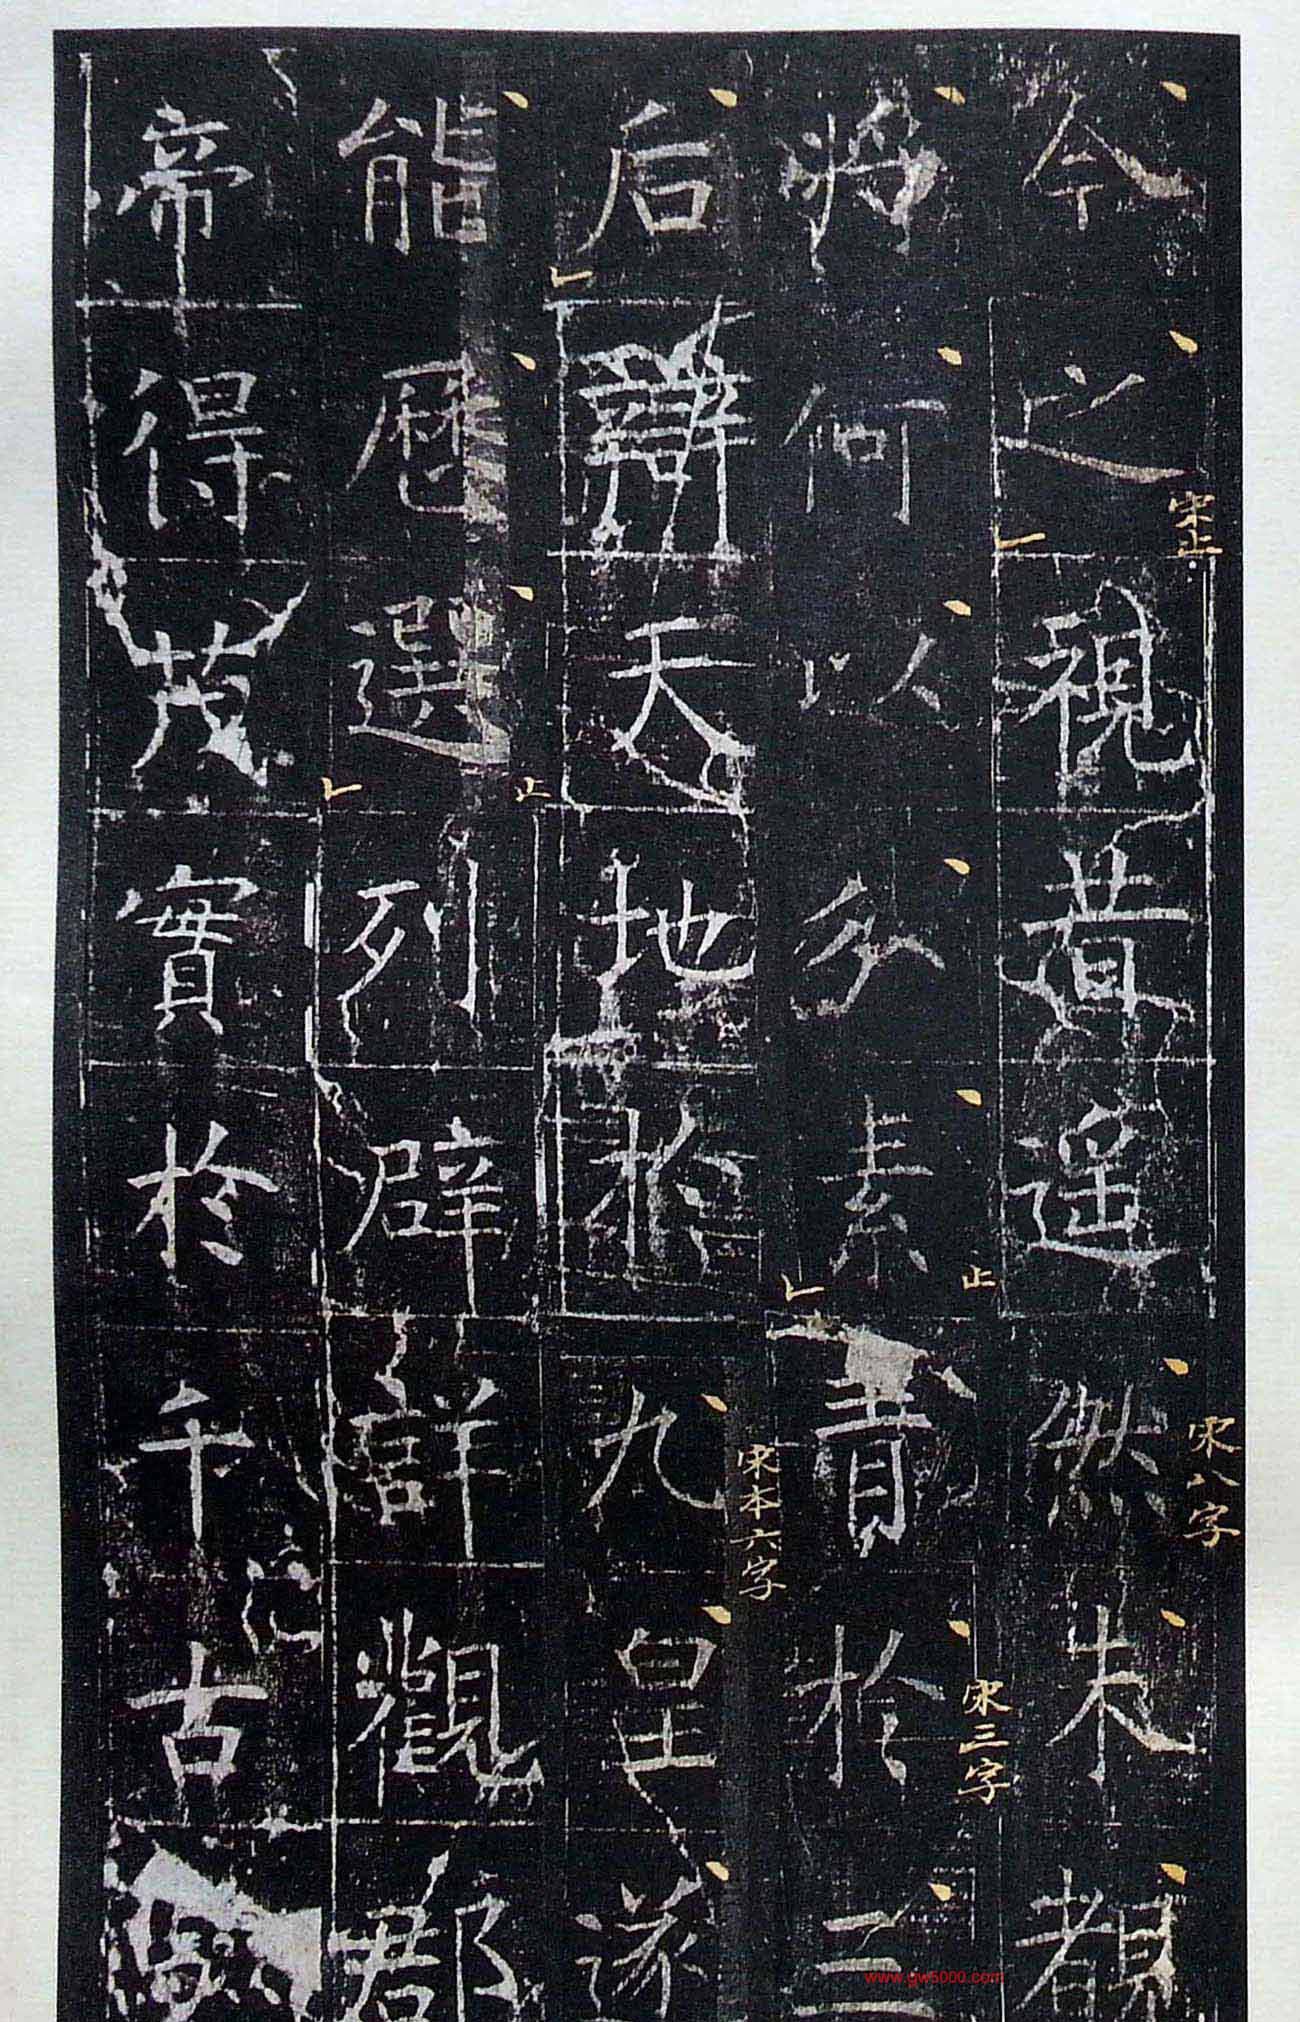 今之視昔遥然未覩
宋止
宋八字
將何以分素青於三
止
宋三字
后辯天地於九皇遂
宋本六字
能歷選列辟詳觀郡
止
帝得茂實於千古
www.gw5000.com